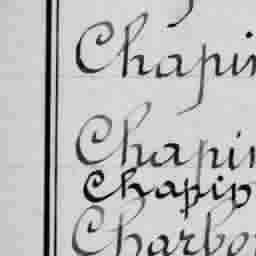 Chapin
Chapin
Chapip
Charbo